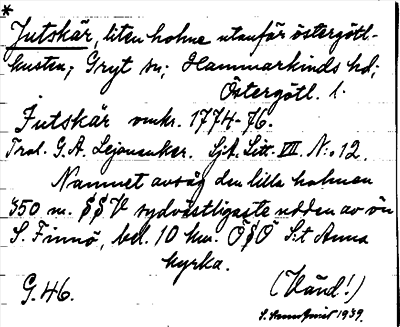 *
Jutskär, liten holme utanför östergötl-
kusten; Gryt sn; Hammarkinds hd;
Östergötl. l.
Jutskär omkr. 1774-76.
Trol. G.A. Lejonanker. Sjk. Litt. VIII. N:o 12.
Namnet avsåg den lilla holmen
350 m. S§V sydvästligaste udden av ön
S. Finnö, bel. 10 km. Ö§Ö S:t Anna
kyrka.
G. 46. (Vänd!)
1939.